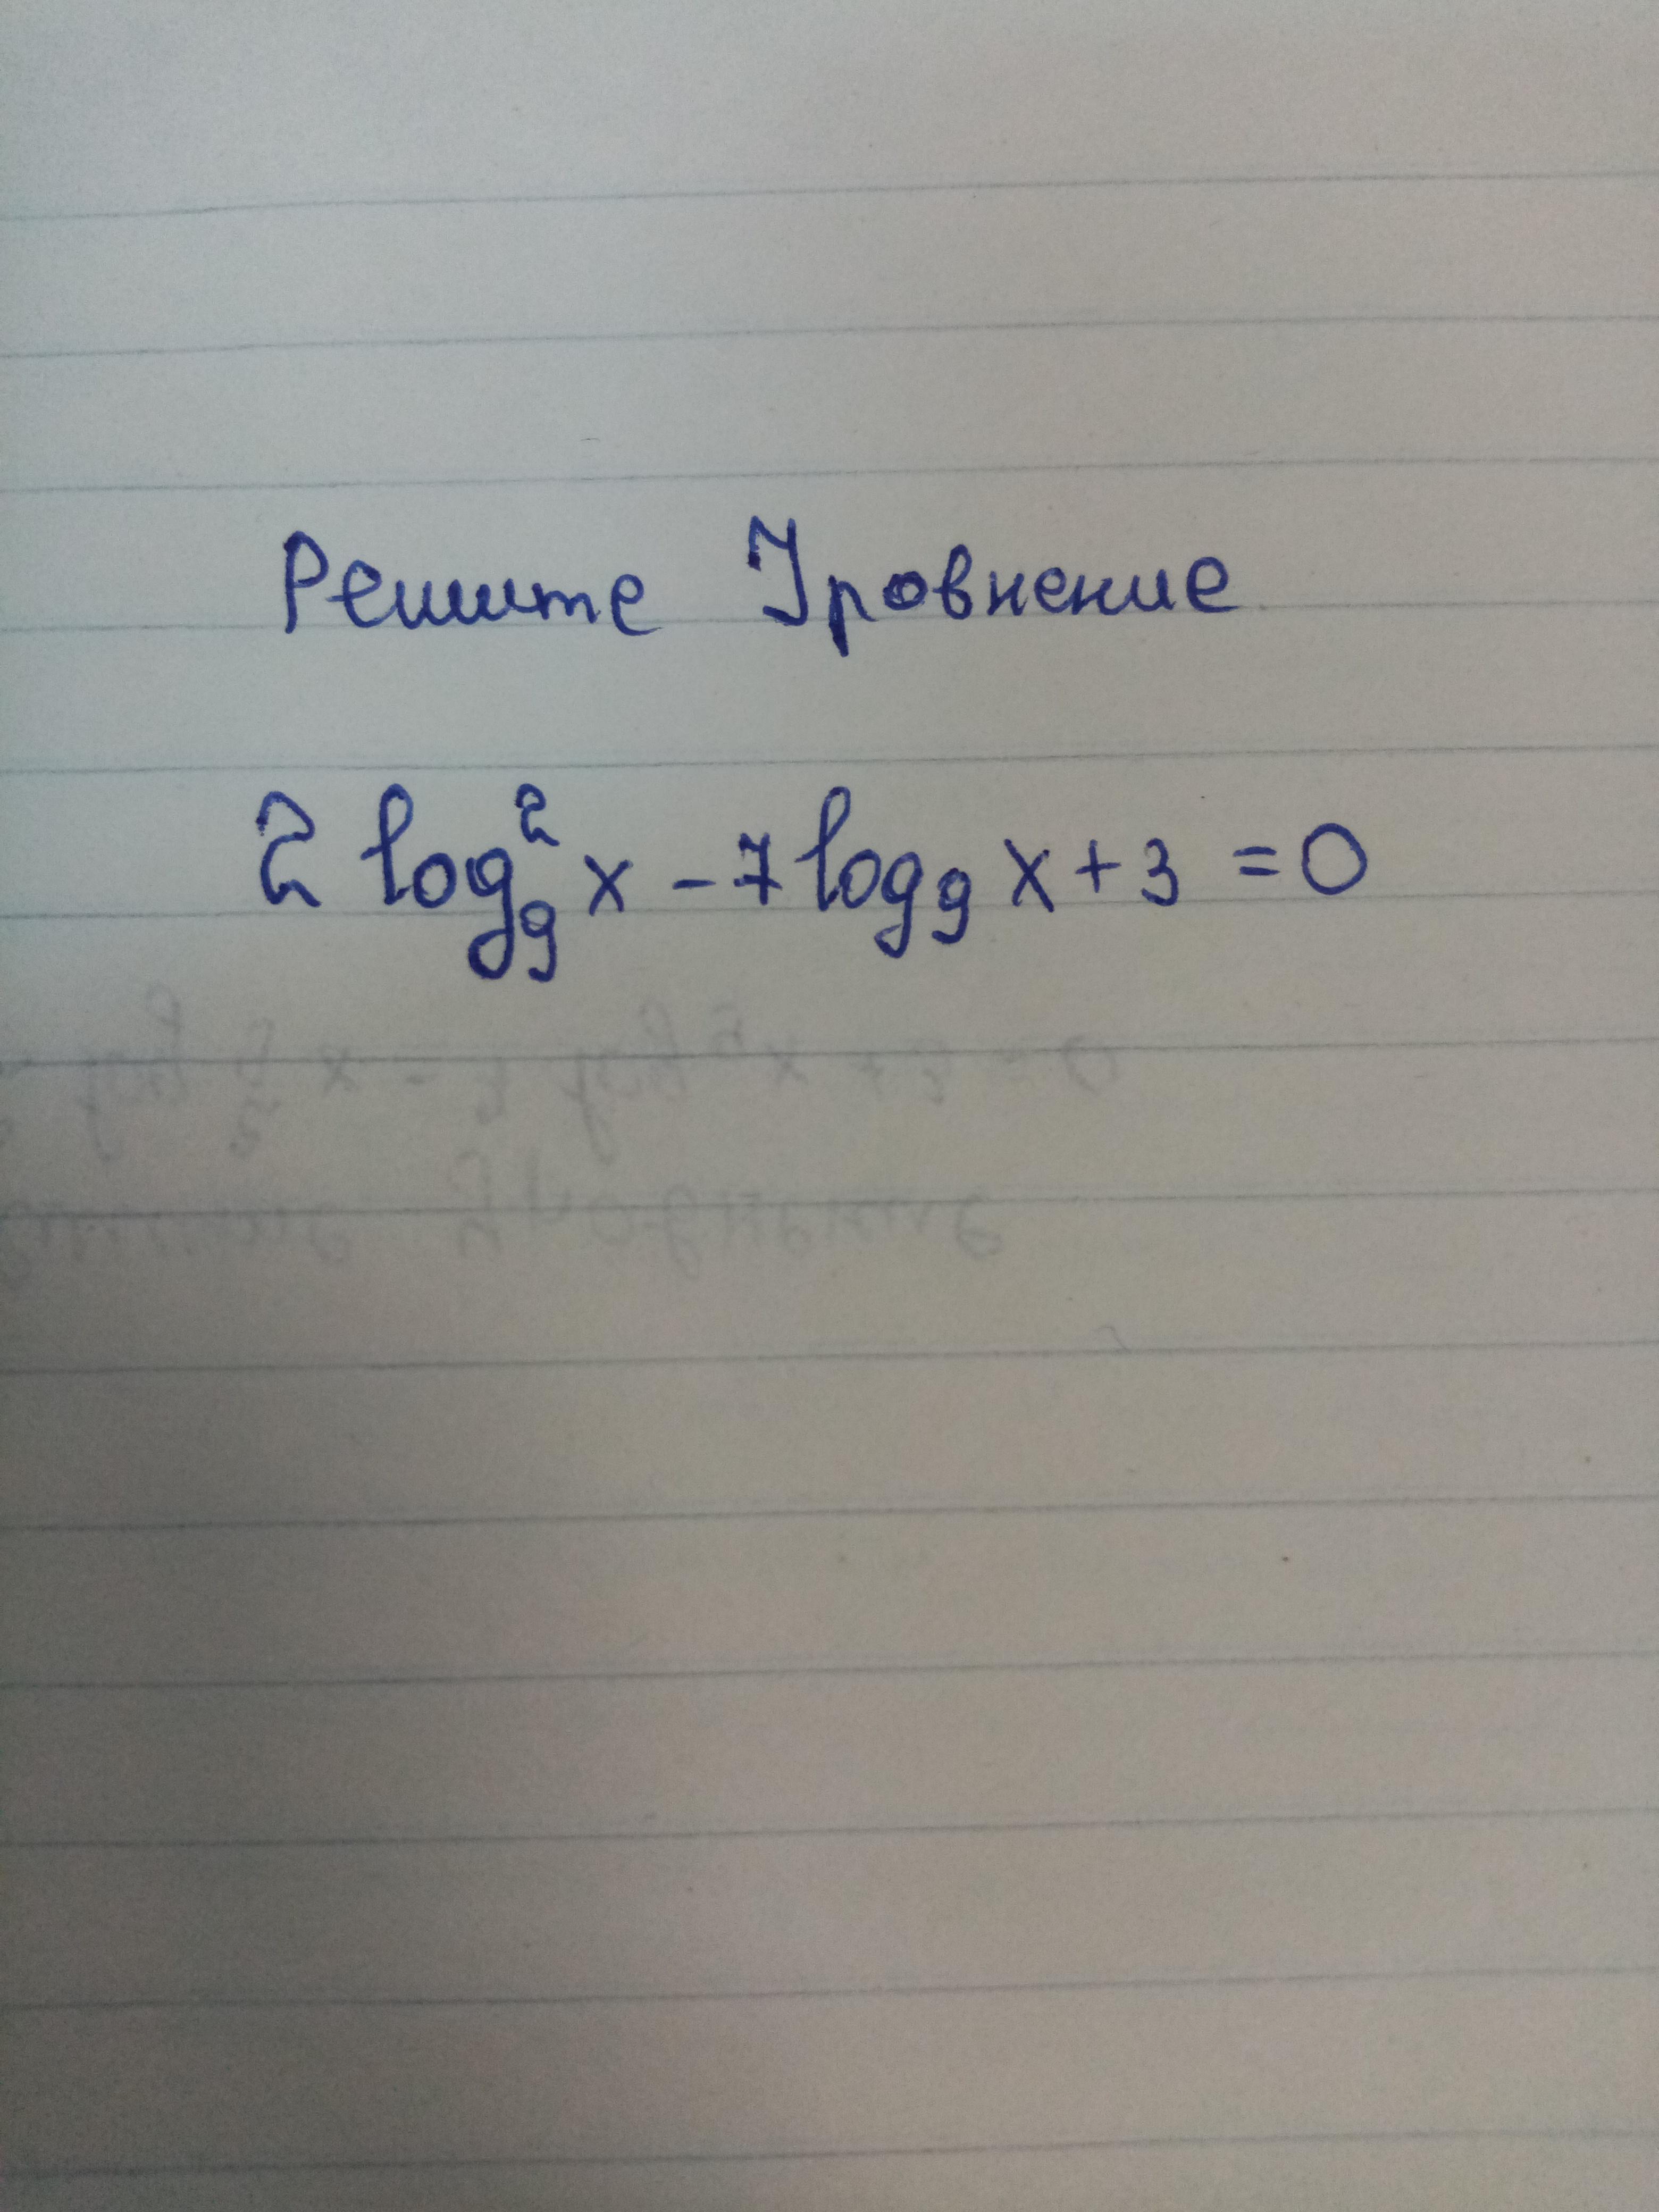 Решите Уровнение
2 log₉² x - 7 log₉ x + 3 = 0